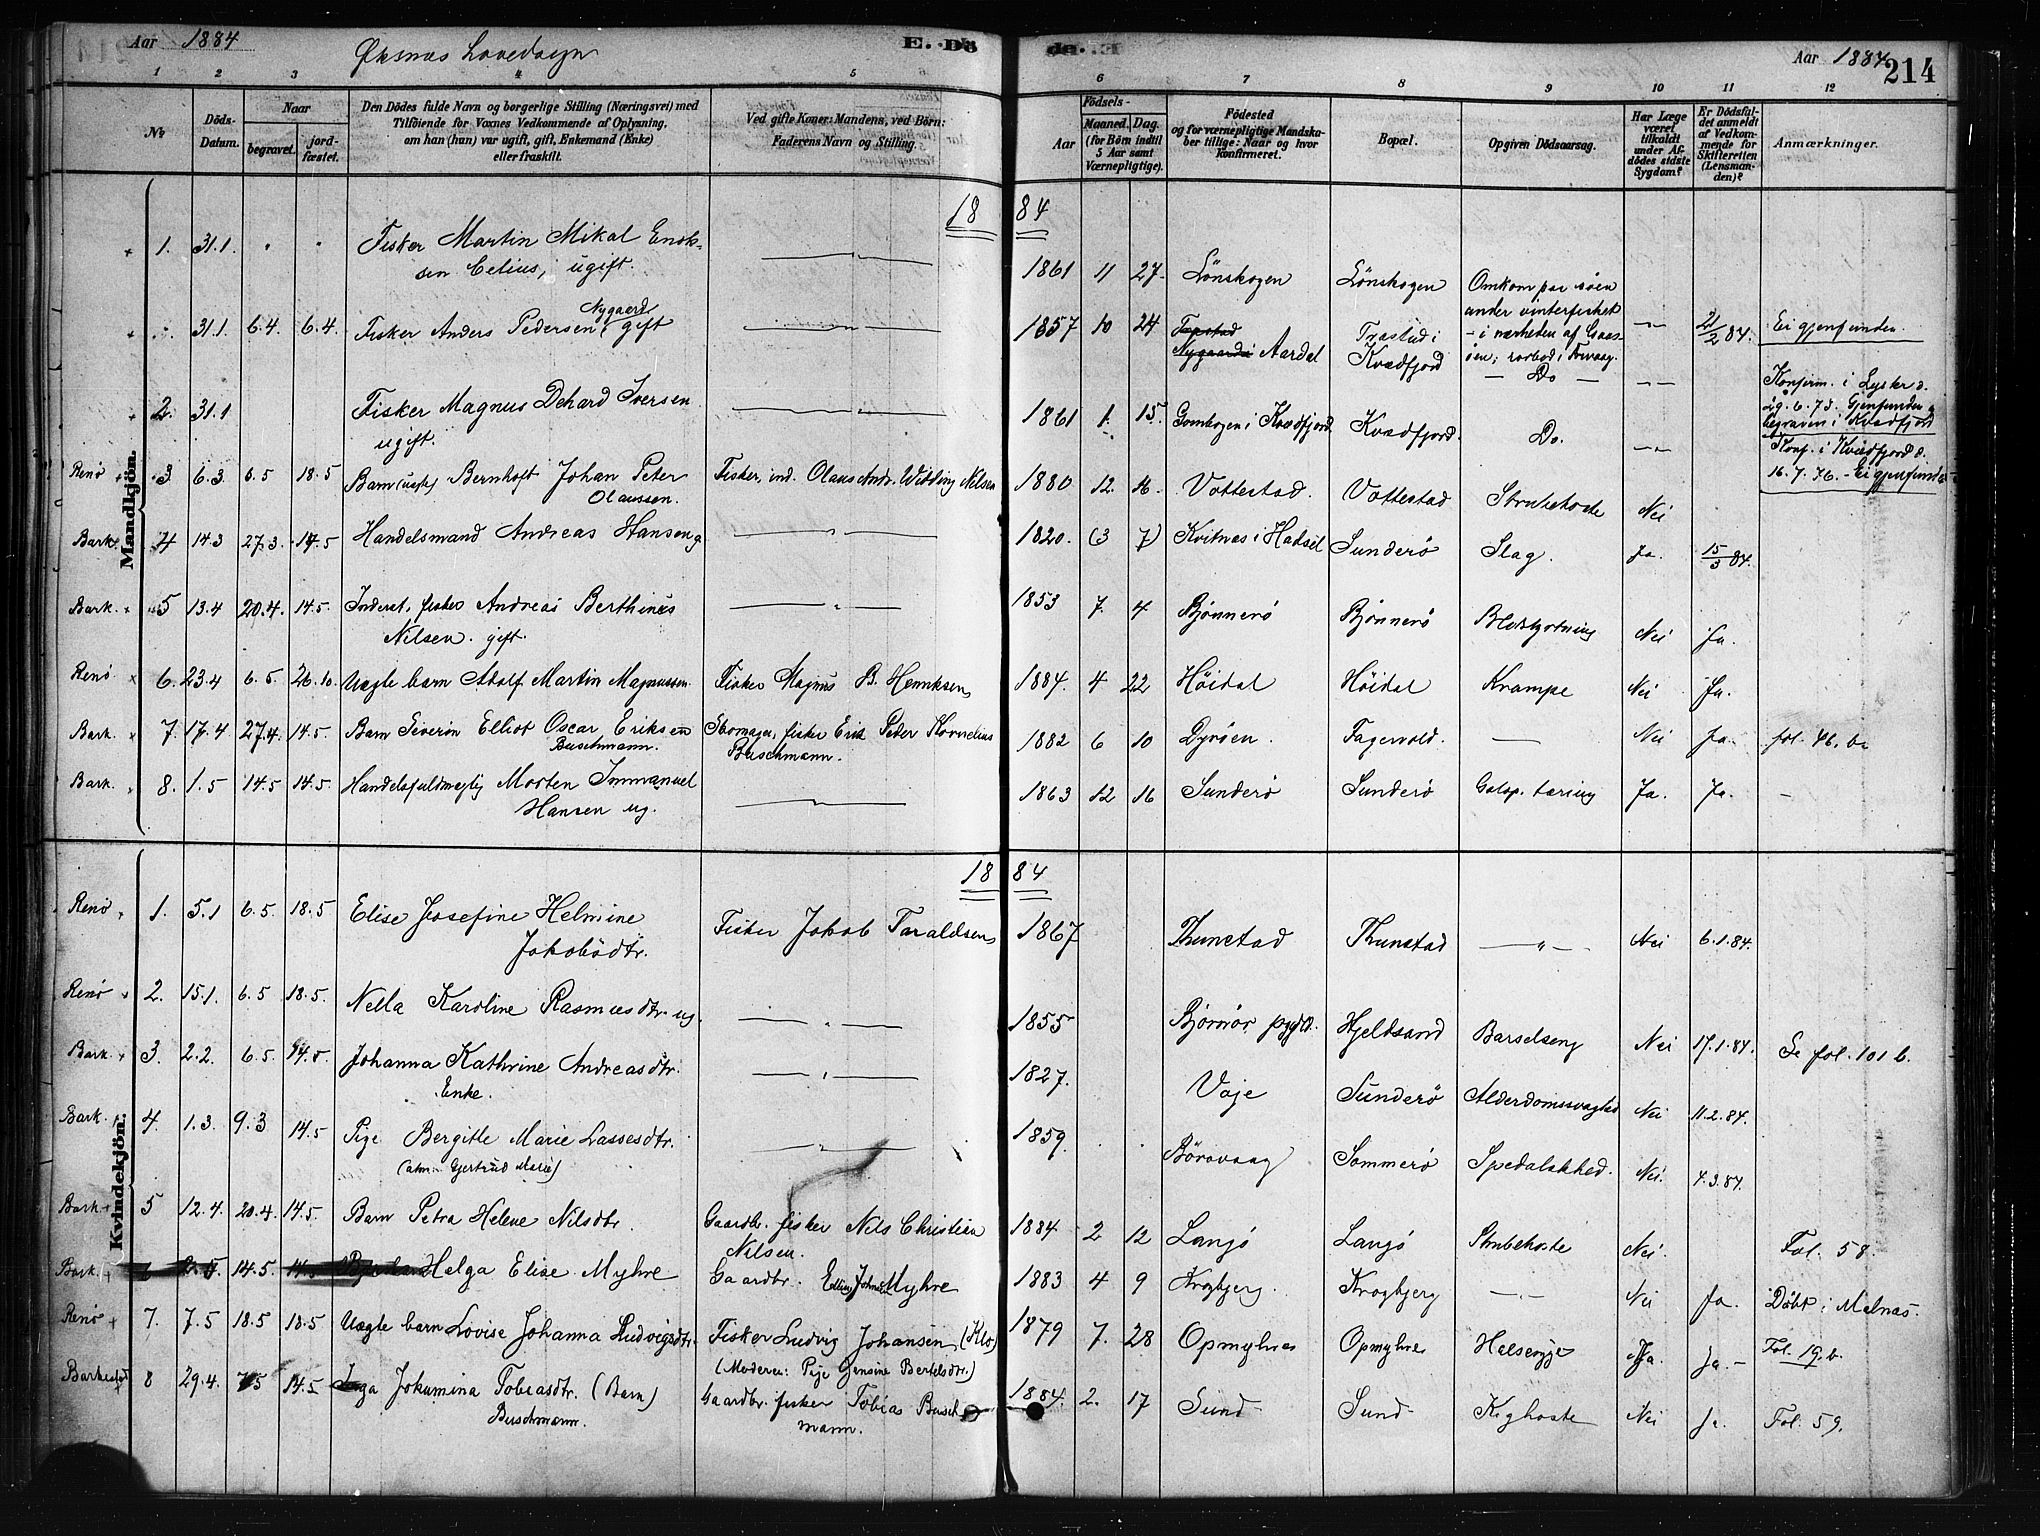 Aar 1884
Øksnes Hovedsogn
E. Dö
de. E.
Aar 1884
214
1 2 3 4 5 6 7 8 9 10 11 12
No
Döds-Datum.
Naar
begravet.
jord-fæstet.
Den Dödes fulde Navn og borgerlige Stilling (Næringsvei) med
Tilföiende for Voxnes Vedkommende af Oplysning,
om han (hun) var ugift, gift, Enkemand (Enke)
eller fraskilt.
Ved gifte Koner: Mandens, ved Börn:
Faderens Navn og Stilling.
Födsels-
Aar
Maaned. Dag.
(for Börn indtil
5 Aar samt
Værnepligtige).
Födested
og for værnepligtige Mandska-
ber tillige: Naar og hvor
konfirmeret.
Bopæl.
Opgiven Dödsaarsag.
Har Læge
været
tilkaldt
under Af-
dödes sidste
Sygdom?
Er Dödsfal-
det anmeldt
af Vedkom-
mende for
Skifteretten
(Lensman-
den)?
Anmærkninger.
Mandkjön.
1884
1. 31.1 Fisker Martin Mikal Enok-
sen Celius, ugift. 1861 11 27. Lönskogen Lönskogen Omkom paa söen
under vinterfisket
i nærheden af Gaas-
öen; rorbod i Forvaag.
31.1 6.4. 6.4. Fisker Anders Pedersen Nygaard gift 1857 10 24 Aardal Kvædfjord Do 2/2 84. Ei gjenfunden.
Konfirm. i Lyster d.
29.6.73. Gjenfunden
begraven i Kvædfjord
2. 31.1 Fisker Magnus Dehard Iversen
ugift. 1861 1. 15. i Kvædfjord Kvædfjord. Do. Konf. i Kvædfjord d.
16.7.76. Ei gjenfunden
Renö 3 6.3. 6.5 18.5 Barn (uægte) Bernhoft Johan Peter
Olaussen. Fisker, ind. Olaus Andr. Widding Nilsen 1880 12. 16. Vottestad. Vottestad Strubehoste Nei
Bark. 4 14.3 27.3. 14.5 Handelsmand Andreas Hansen g 1820. (3 7) Kvitnes i Hadsel Sunderö Slag. Ja. 15/3 84.
Bark. 5 13.4 20.4. 14.5. Inderst, fisker Andreas Berthinus
Nilsen. gift. 1853 7. 4 Björnerö Björnerö Blodstyrtning Nei Ja.
Renö 6. 23.4 6.5. 26.10. Uægte barn Adolf Martin Magnussen Fisker Magnus B. Henriksen 1884. 4 22 Höidal Höidal Krampe Nei Ja.
Bark. 7. 17.4 27.4. 14.5. Barn Severin Elliot Oscar Eriksen
Buschmann. Skomager, fisker Erik Peter Kornelius
Buschmann. 1882 6 10 Dyröen. Fagervold. Nei Ja. fol. 46. b.
Bark. 8. 1.5 14.5 14.5. Handelsfuldmegtig Morten Immanuel
Hansen ug. 1863 12 16 Sunderö Sunderö Galop. tæring Ja. Ja.
Kvindekjön.
1884
Renö 1. 5.1 6.5. 18.5 Elise Josefine Helmine
Jakobsdtr. Fisker Jakob Taraldsen 1867 Thunstad Thunstad Nei 6.1.84.
Renö 2. 15.1. 6.5 18.5. Nella Karoline Rasmusdtr. ug. 1855 Björnör pgjld. Hjeldsand Barselseng Nei 17.1.84. Se fol. 101 b.
Bark. 3. 2.2. 6.5. 14.5. Johanna Kathrine Andreasdtr.
Enke. 1827. Vaje Sunderö Alderdomssvaghed Nei 11.2.84.
Bark. 4 1.3. 9.3 14.5 Pige Bergitte Marie Lassesdtr.
(alm. Gjertrud Marie) 1859. Börövaag Sommerö Spedalskhed. Nei. 4.3.84.
Bark. 5 12.4. 20.4. 14.5. Barn Petra Helene Nilsdtr. Gaardbr. fisker Nils Christian
Nilsen. 1884 2 12 Langö Langö Strubehoste Nei. Fol. 58.
Bark. 14.5. Helga Elise Myhre Gaardbr. Myhre 1883 4 9 Krogbjerg. Krogbjerg Nei Ja. Döbt i Melnæs.
Renö 7. 7.5 18.5 18.5 Uægte barn Lovise Johanna Ludvigsdtr. Fisker Ludvig Johansen (Klo)
(Moderen: Pige Jensine Bertelsdtr.) 1879 7. 28 Opmyhre Opmyhre Halsesyge Ja. Ja. Fol. 19. b.
Barkestad 8 29.4. 7.5 14.5 Inga Jokumina Tobiasdtr. (Barn)
Buschmann. Gaardbr. fisker Tobias Busch-
mann. 1884. 2. 17 Sund Sund Kighoste Nei Ja Fol. 59.